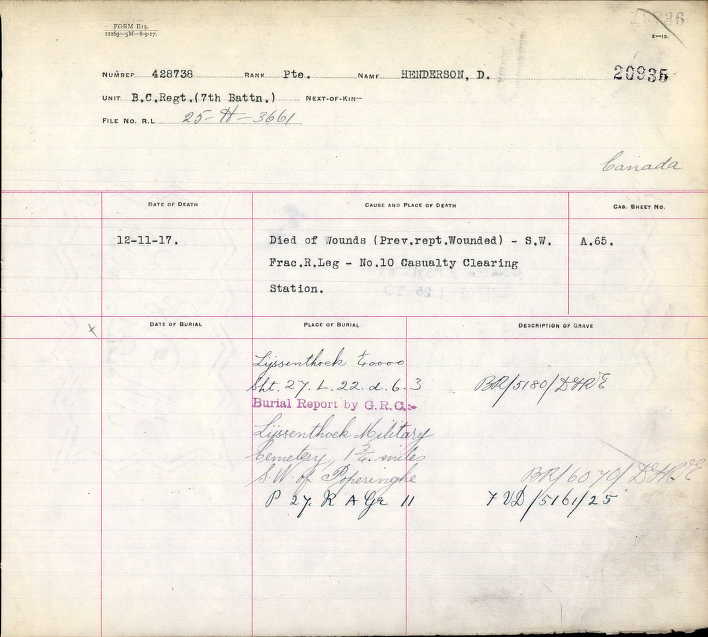 FORM R13.
12269—5M—8-9-17.
E—12.
NUMBER 428738 RANK Pte. NAME HENDERSON, D. 20935
UNIT B.C.Regt.(7th Battn.) NEXT-OF-KIN—
FILE NO. R.L 25-H-3661
Canada
DATE OF DEATH CAUSE AND PLACE OF DEATH CAS. SHEET NO.
12-11-17. Died of Wounds (Prev.rept.Wounded) - S.W. A.65.
Frac.R.Leg - No.10 Casualty Clearing
Station.
DATE OF BURIAL PLACE OF BURIAL DESCRIPTION OF GRAVE
x
Lijssenthoek
Sht. 27. L. 22. d. 6. 3 BR/5180/DGR&E
Burial Report by G.R.C:-
Lijssenthoek Military
Cemetery, miles
S.W of Poperinghe BR/6070/DGR&E
P 27. R A Gr 11 7 VD/5161/25